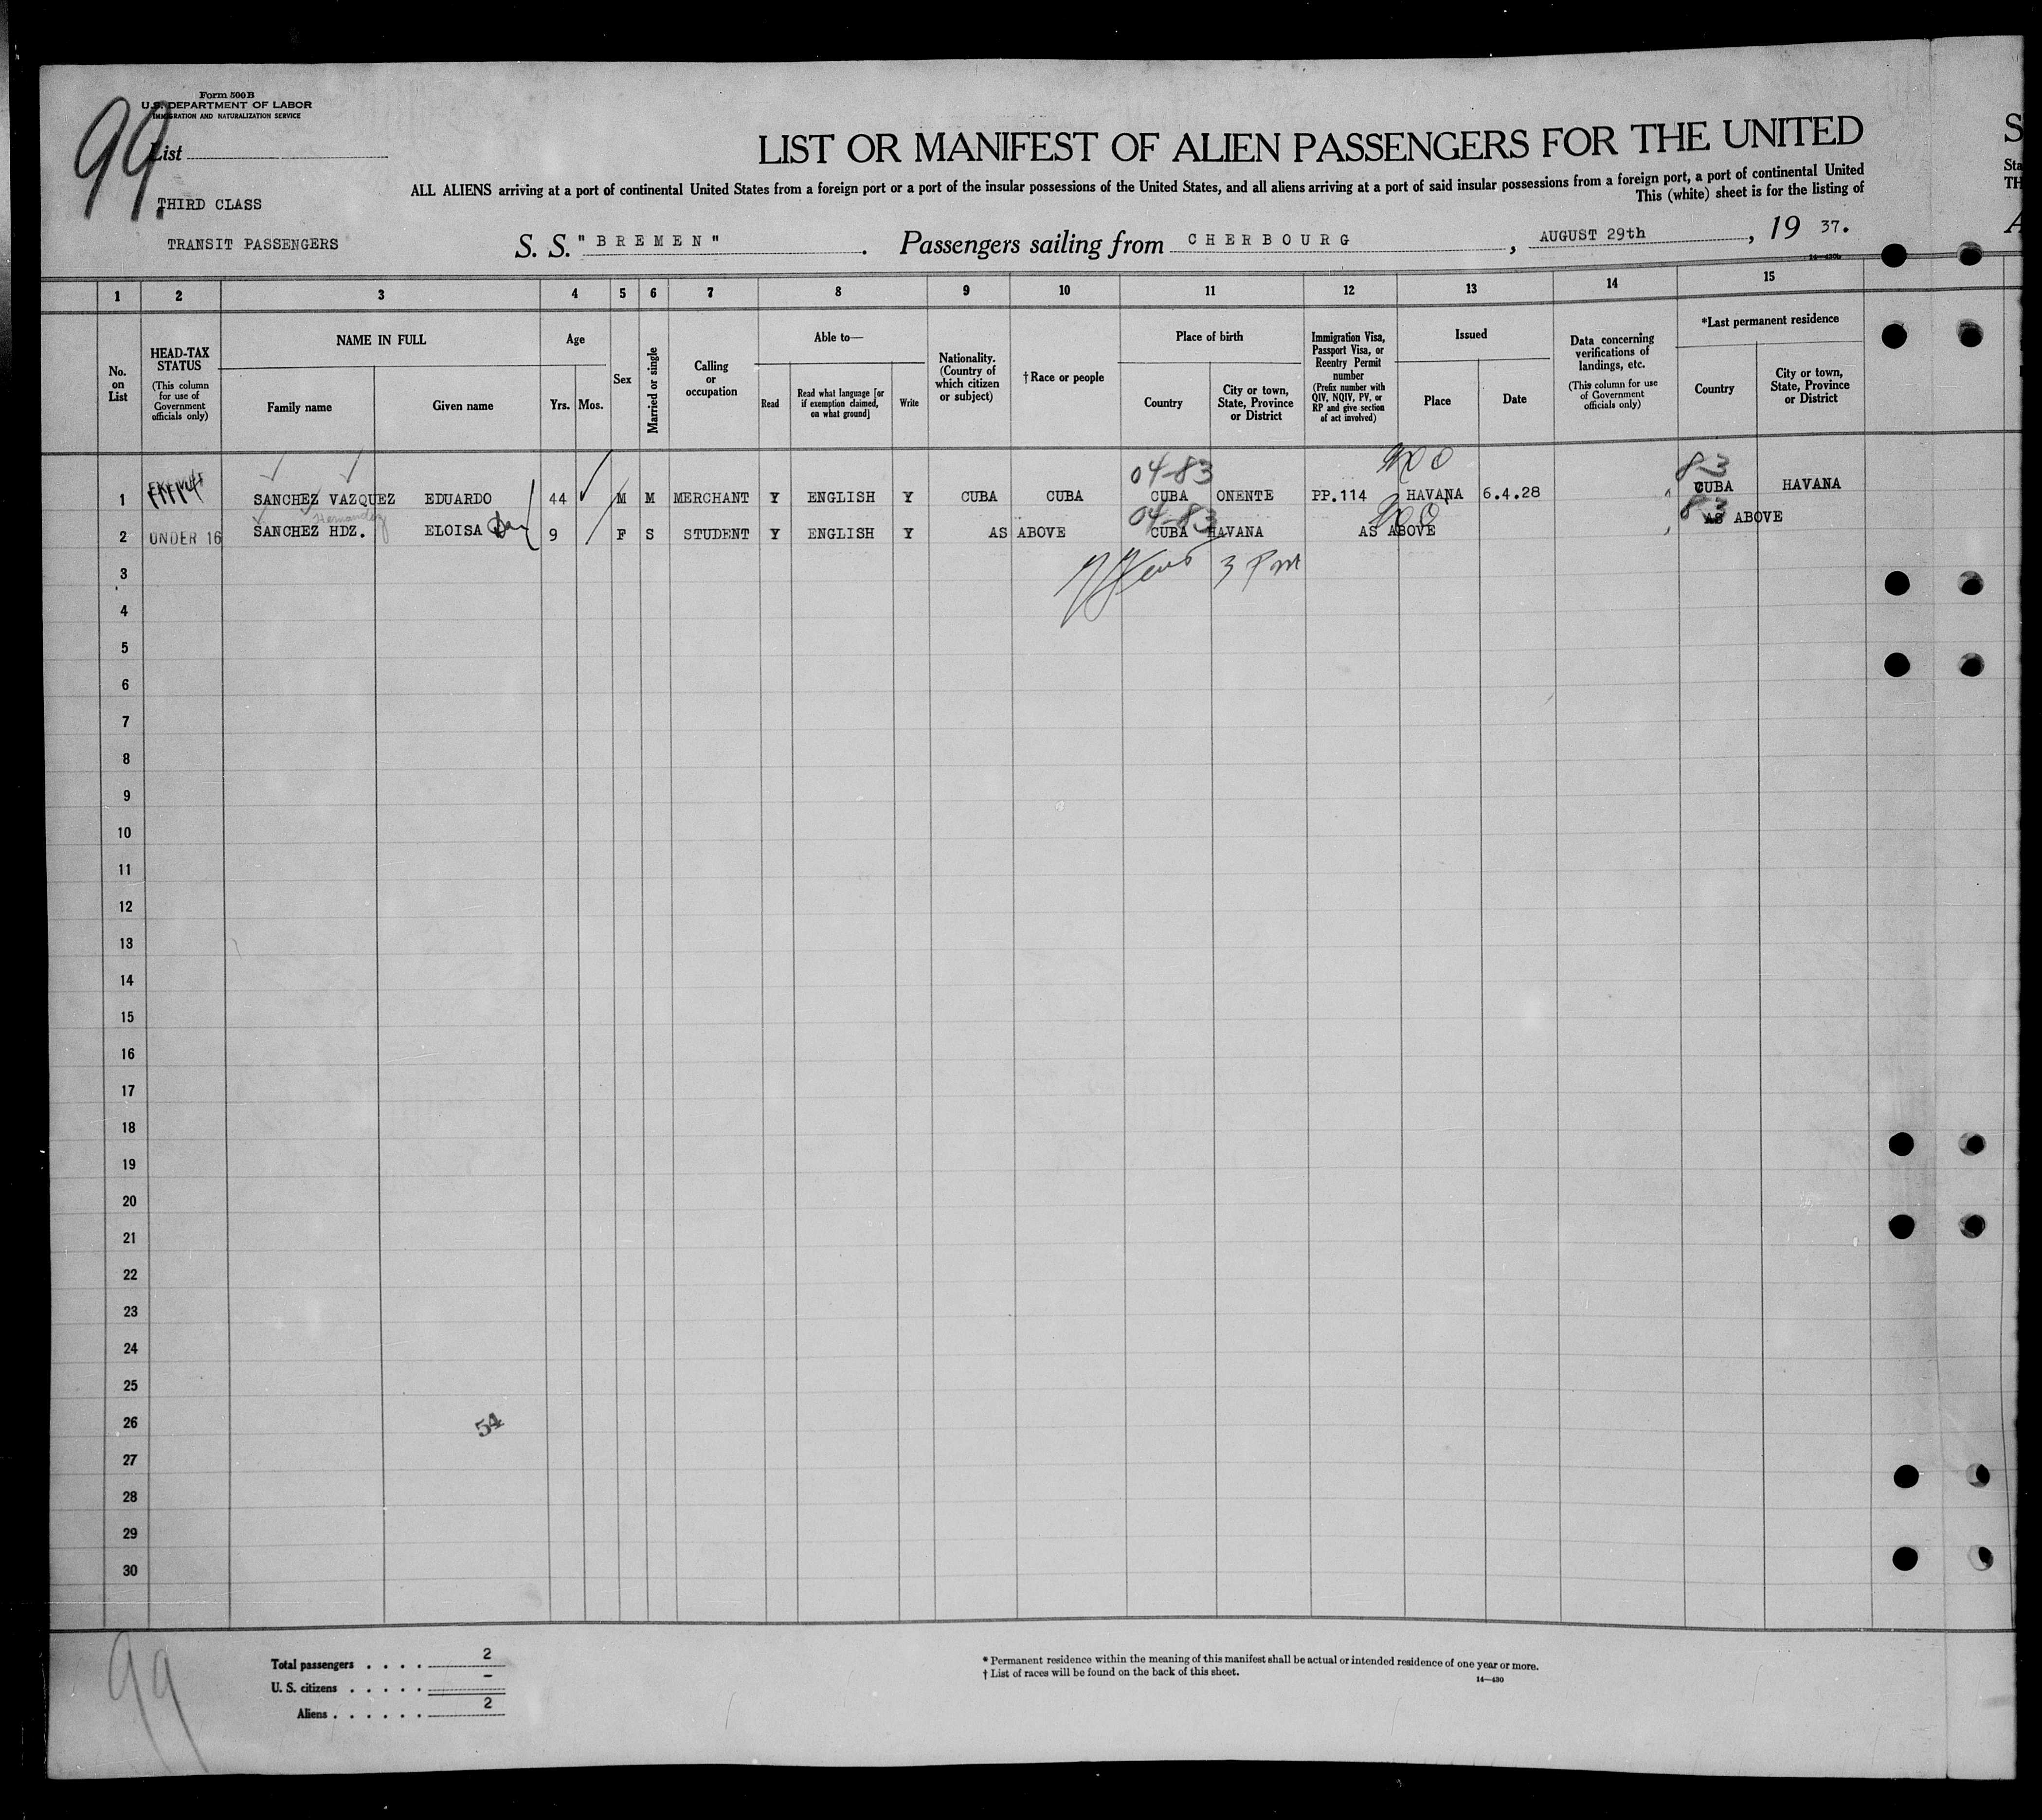 Form 500B
U.S. DEPARTMENT OF LABOR
IMMIGRATION AND NATURALIZATION SERVICE
99
List
THIRD CLASS
TRANSIT PASSENGERS
LIST OR MANIFEST OF ALIEN PASSENGERS FOR THE UNITED
S
ALL ALIENS arriving at a port of continental United States from a foreign port or a port of the insular possessions of the United States, and all aliens arriving at a port of said insular possessions from a foreign port, a port of continental United
Sta
This (white) sheet is for the listing of
TH
S. S. "BREMEN". Passengers sailing from CHERBOURG, AUGUST 29th, 19 37.
A
14—430b
1 2 3 4 5 6 7 8 9 10 11 12 13 14 15
No. on List
HEAD-TAX STATUS (This column for use of Government officials only)
NAME IN FULL
Family name
Given name
Age
Yrs. Mos.
Sex
Married or single
Calling or occupation
Able to—
Read
Read what language [or if exemption claimed, on what ground]
Write
Nationality. (Country of which citizen or subject)
†Race or people
Place of birth
Country
City or town, State, Province or District
Immigration Visa, Passport Visa, or Reentry Permit number (Prefix number with QIV, NQIV, PV, or RP and give section of act involved)
Issued
Place
Date
Data concerning verifications of landings, etc. (This column for use of Government officials only)
*Last permanent residence
Country
City or town, State, Province or District
04-83
83
1 SANCHEZ VAZQUEZ EDUARDO 44 M M MERCHANT Y ENGLISH Y CUBA CUBA CUBA ONENTE PP.114 HAVANA 6.4.28 CUBA HAVANA
Hernandez
04-83
83
2 UNDER 16 SANCHEZ HDZ. ELOISA 9 F S STUDENT Y ENGLISH Y AS ABOVE CUBA HAVANA AS ABOVE AS ABOVE
3 3 Pm
4
5
6
7
8
9
10
11
12
13
14
15
16
17
18
19
20
21
22
23
24
25
26
54
27
28
29
30
99
Total passengers . . . . 2
U. S. citizens . . . . . –
Aliens . . . . . . 2
* Permanent residence within the meaning of this manifest shall be actual or intended residence of one year or more.
† List of races will be found on the back of this sheet.
14—430